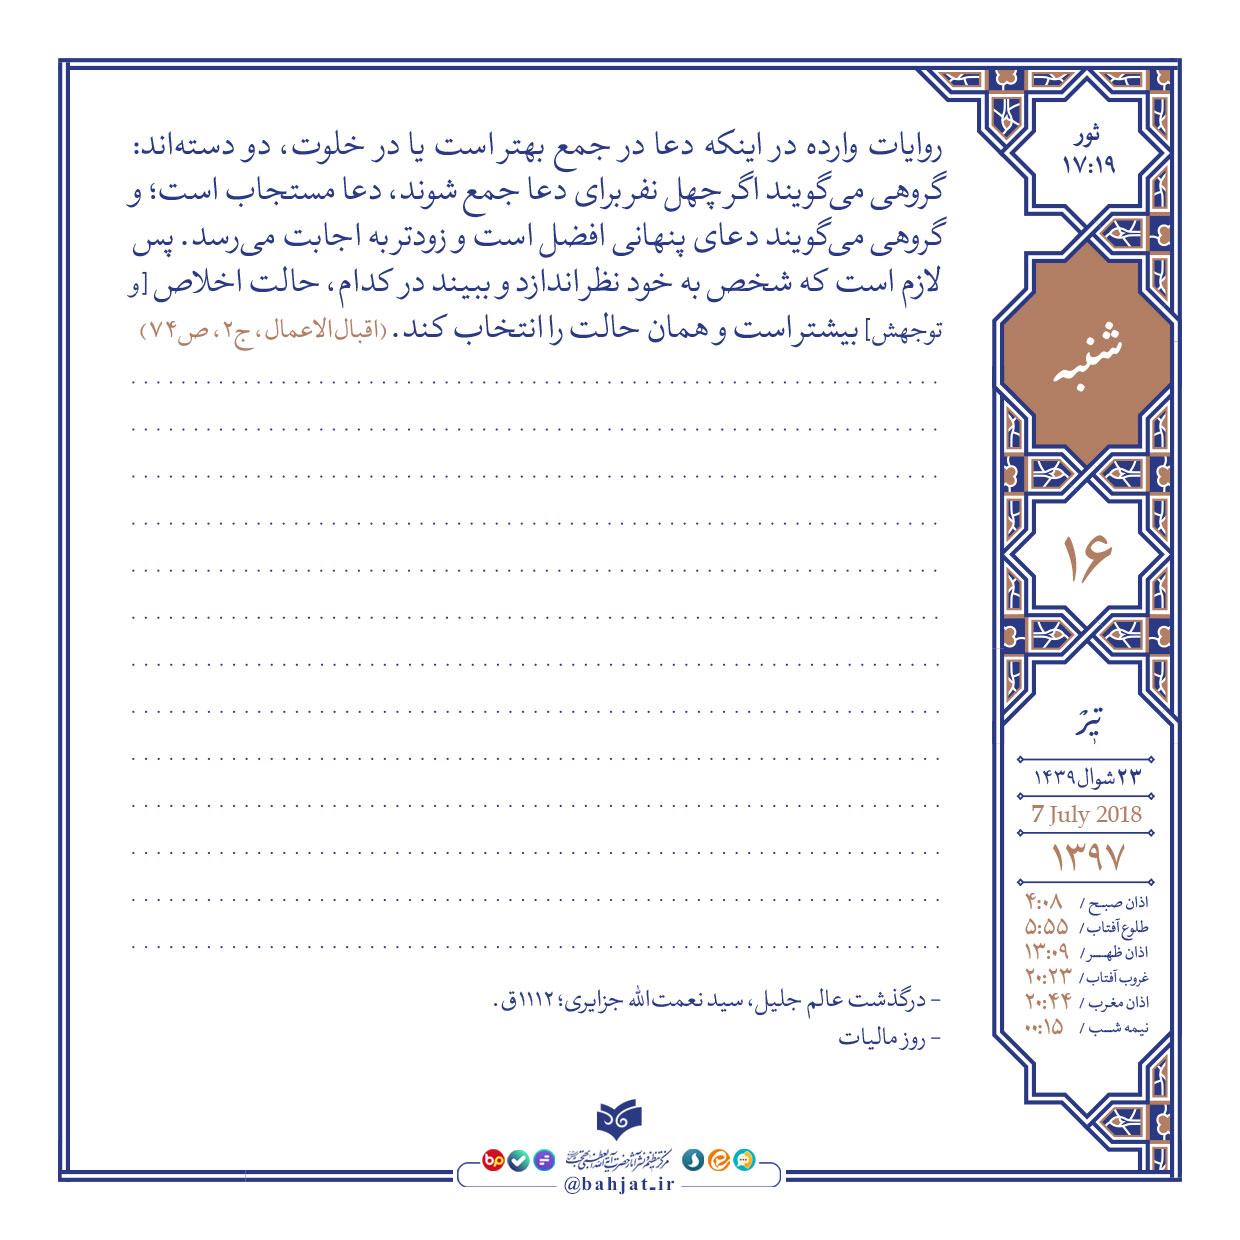 روایات وارده در اینکه دعا در جمع بهتر است یا در خلوت، دو دسته‌اند:
گروهی می‌گویند اگر چهل نفر برای دعا جمع شوند، دعا مستجاب است؛ و
گروهی می‌گویند دعای پنهانی افضل است و زودتر به اجابت می‌رسد. پس
لازم است که شخص به خود نظر اندازد و ببیند در کدام، حالت اخلاص [و
توجهش] بیشتر است و همان حالت را انتخاب کند. (اقبال‌الاعمال، ج۲، ص۷۴)
ثور
۱۷:۱۹
شنبه
۱۶
تیر
۲۳ شوال ۱۴۳۹
7 July 2018
۱۳۹۷
اذان صبح / ۴:۰۸
طلوع آفتاب / ۵:۵۵
اذان ظهر / ۱۳:۰۹
غروب آفتاب / ۲۰:۲۳
اذان مغرب / ۲۰:۴۴
نیمه شب / ۰۰:۱۵
- درگذشت عالم جلیل، سید نعمت‌الله جزایری؛ ۱۱۱۲ق.
- روز مالیات
bp
@bahjat.ir